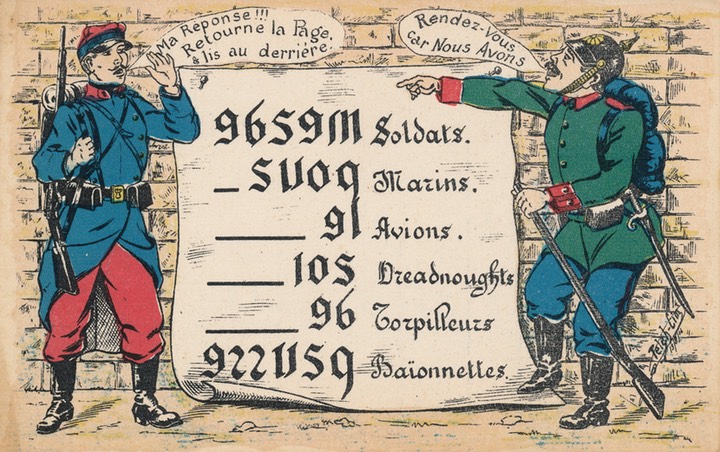 Ma Reponse!!!
Retourne la Page.
& lis au derrière.
Rendez-Vous
car Nous Avons
96591M Soldats.
_SUO9 Marins.
____ 91 Avions.
___ 10S Dreadnoughts
____ 96 Torpilleurs
9722USQ Baïonnettes